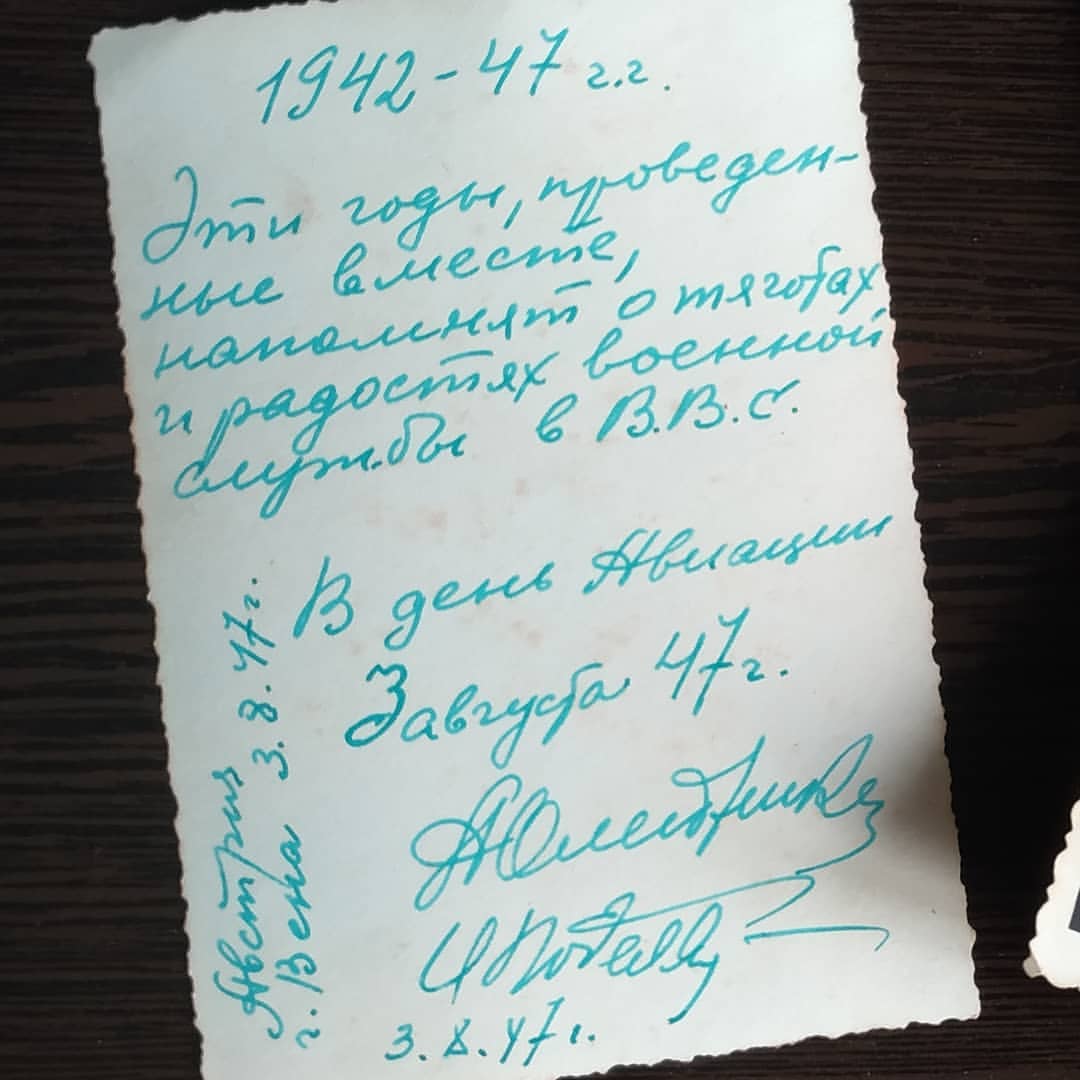 1942-47 г.г.
Эти годы, проведен-
ные вместе,
напомнят о тяготах
и радостях военной
службы в В.В.С.
В день Авиации
3 августа 47 г.
3.8.47 г.
Австрия
г. Вена 3.8.47 г.